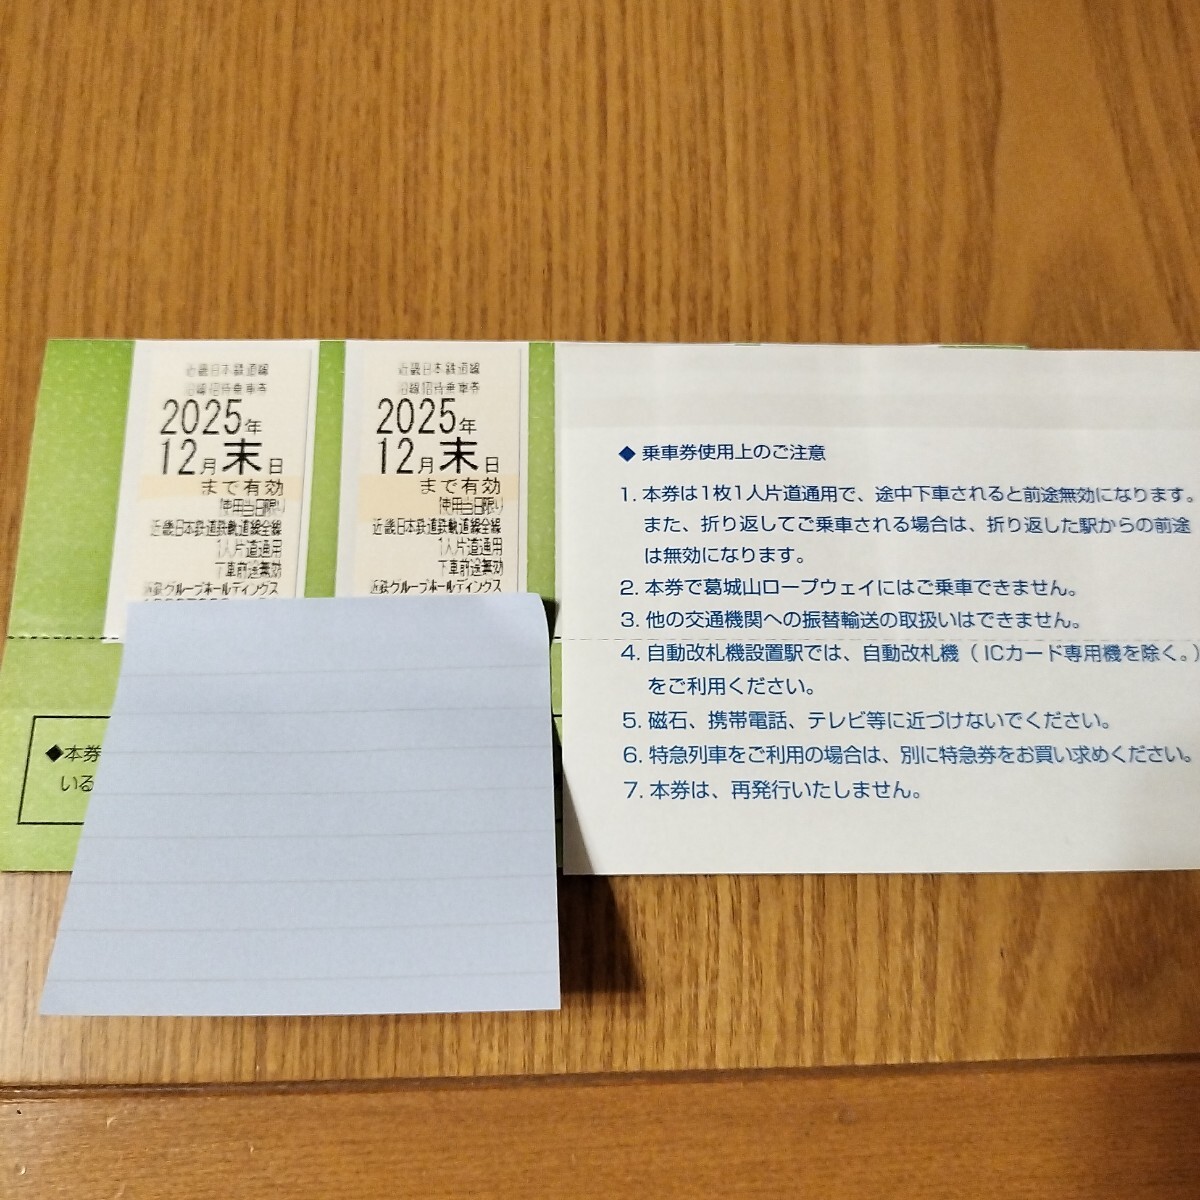 近畿日本鉄道線
沿線招待乗車券
2025年
12月末日
まで有効
(使用当日限り)
近畿日本鉄道鉄軌道線全線
1人片道通用
下車前途無効
近鉄グループホールディングス
近畿日本鉄道線
沿線招待乗車券
2025年
12月末日
まで有効
(使用当日限り)
近畿日本鉄道鉄軌道線全線
1人片道通用
下車前途無効
近鉄グループホールディングス
◆本券
いる
◆ 乗車券使用上のご注意
1. 本券は1枚1人片道通用で、途中下車されると前途無効になります。
また、折り返してご乗車される場合は、折り返した駅からの前途
は無効になります。
2. 本券で葛城山ロープウェイにはご乗車できません。
3. 他の交通機関への振替輸送の取扱いはできません。
4. 自動改札機設置駅では、自動改札機（ICカード専用機を除く。）
をご利用ください。
5. 磁石、携帯電話、テレビ等に近づけないでください。
6. 特急列車をご利用の場合は、別に特急券をお買い求めください。
7. 本券は、再発行いたしません。